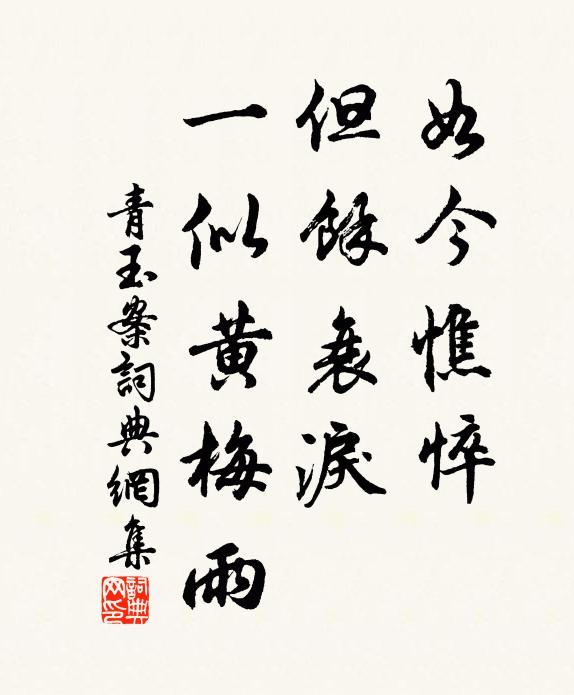 如今憔悴
但餘衰淚
一似黃梅雨
青玉案詞典網集
詞典网印